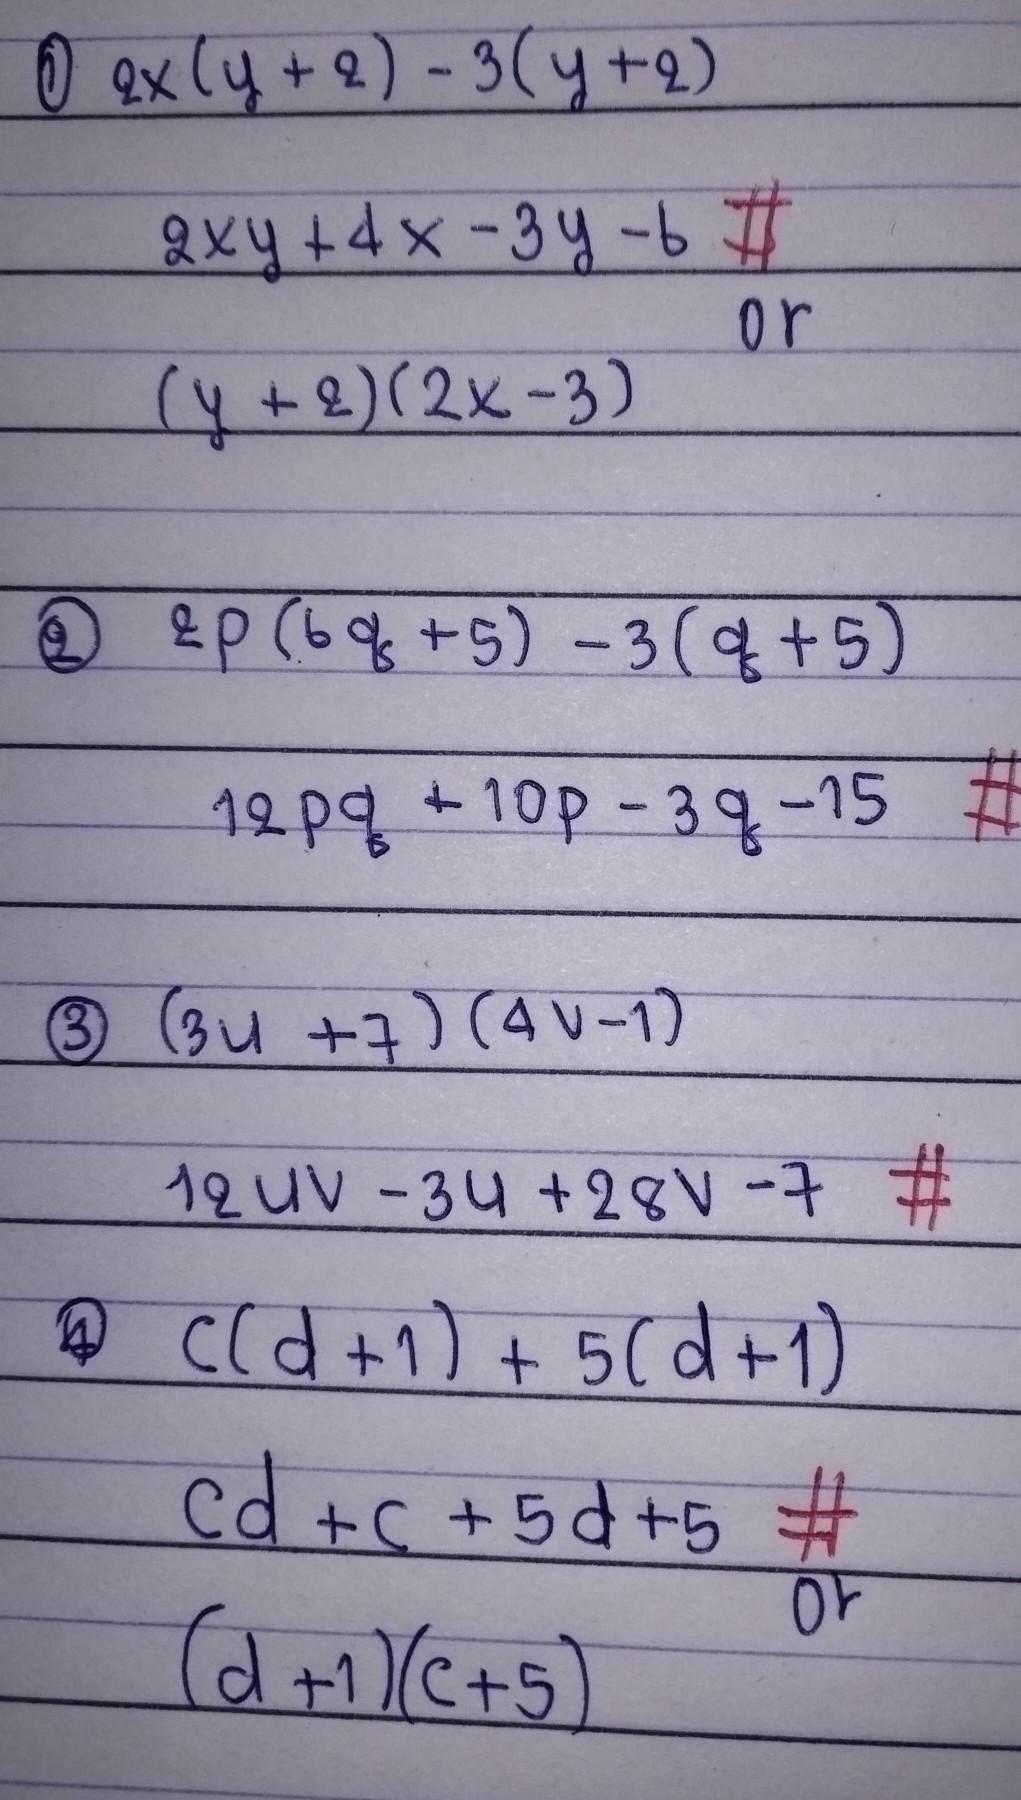 ① 2x(y+2) - 3(y+2)
2xy + 4x - 3y - 6 #
or
(y+2)(2x-3)
② 2p(6q+5) - 3(q+5)
12pq + 10p - 3q - 15 #
③ (3u+7)(4v-1)
12uv - 3u + 28v - 7 #
④ c(d+1) + 5(d+1)
cd + c + 5d + 5 #
or
(d+1)(c+5)